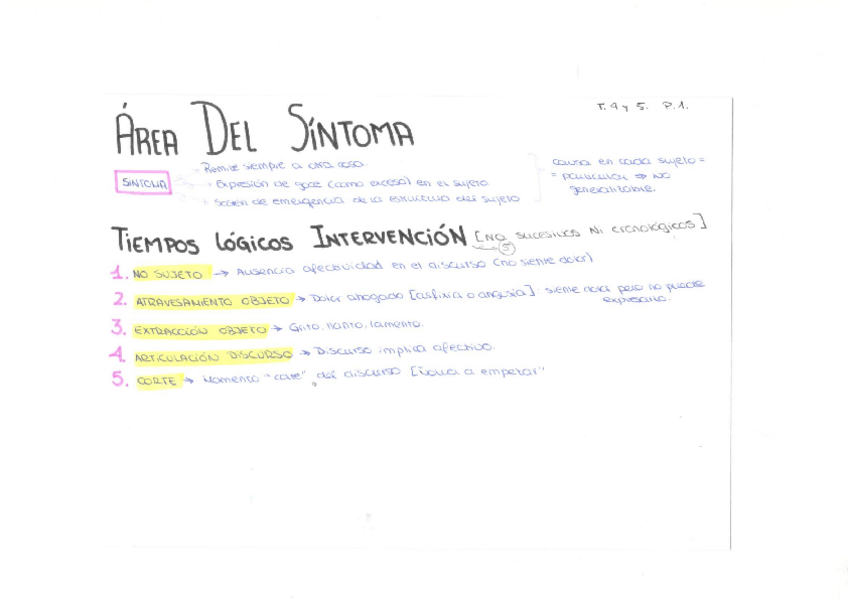 T. 4 y 5. P.1.
ÁREA DEL SÍNTOMA
SÍNTOMA
Remite siempre a otra cosa.
Expresión de goce (como exceso) en el sujeto
de emergencia de la estructura del sujeto
causa en cada sujeto =
= particular ⇒ NO
generalizable.
TIEMPOS LÓGICOS INTERVENCIÓN [NO sucesivos Ni cronológicos]
5
1. NO SUJETO → Ausencia afectividad en el discurso (no siente dolor)
2. ATRAVESAMIENTO OBJETO → Dolor ahogado [asfixia o angustia]: siente dolor pero no puede
expresarlo.
3. EXTRACCIÓN OBJETO → Grito, llanto, lamento.
4. ARTICULACIÓN DISCURSO → Discurso implica afectivo.
5. CORTE → Momento "corte" del discurso